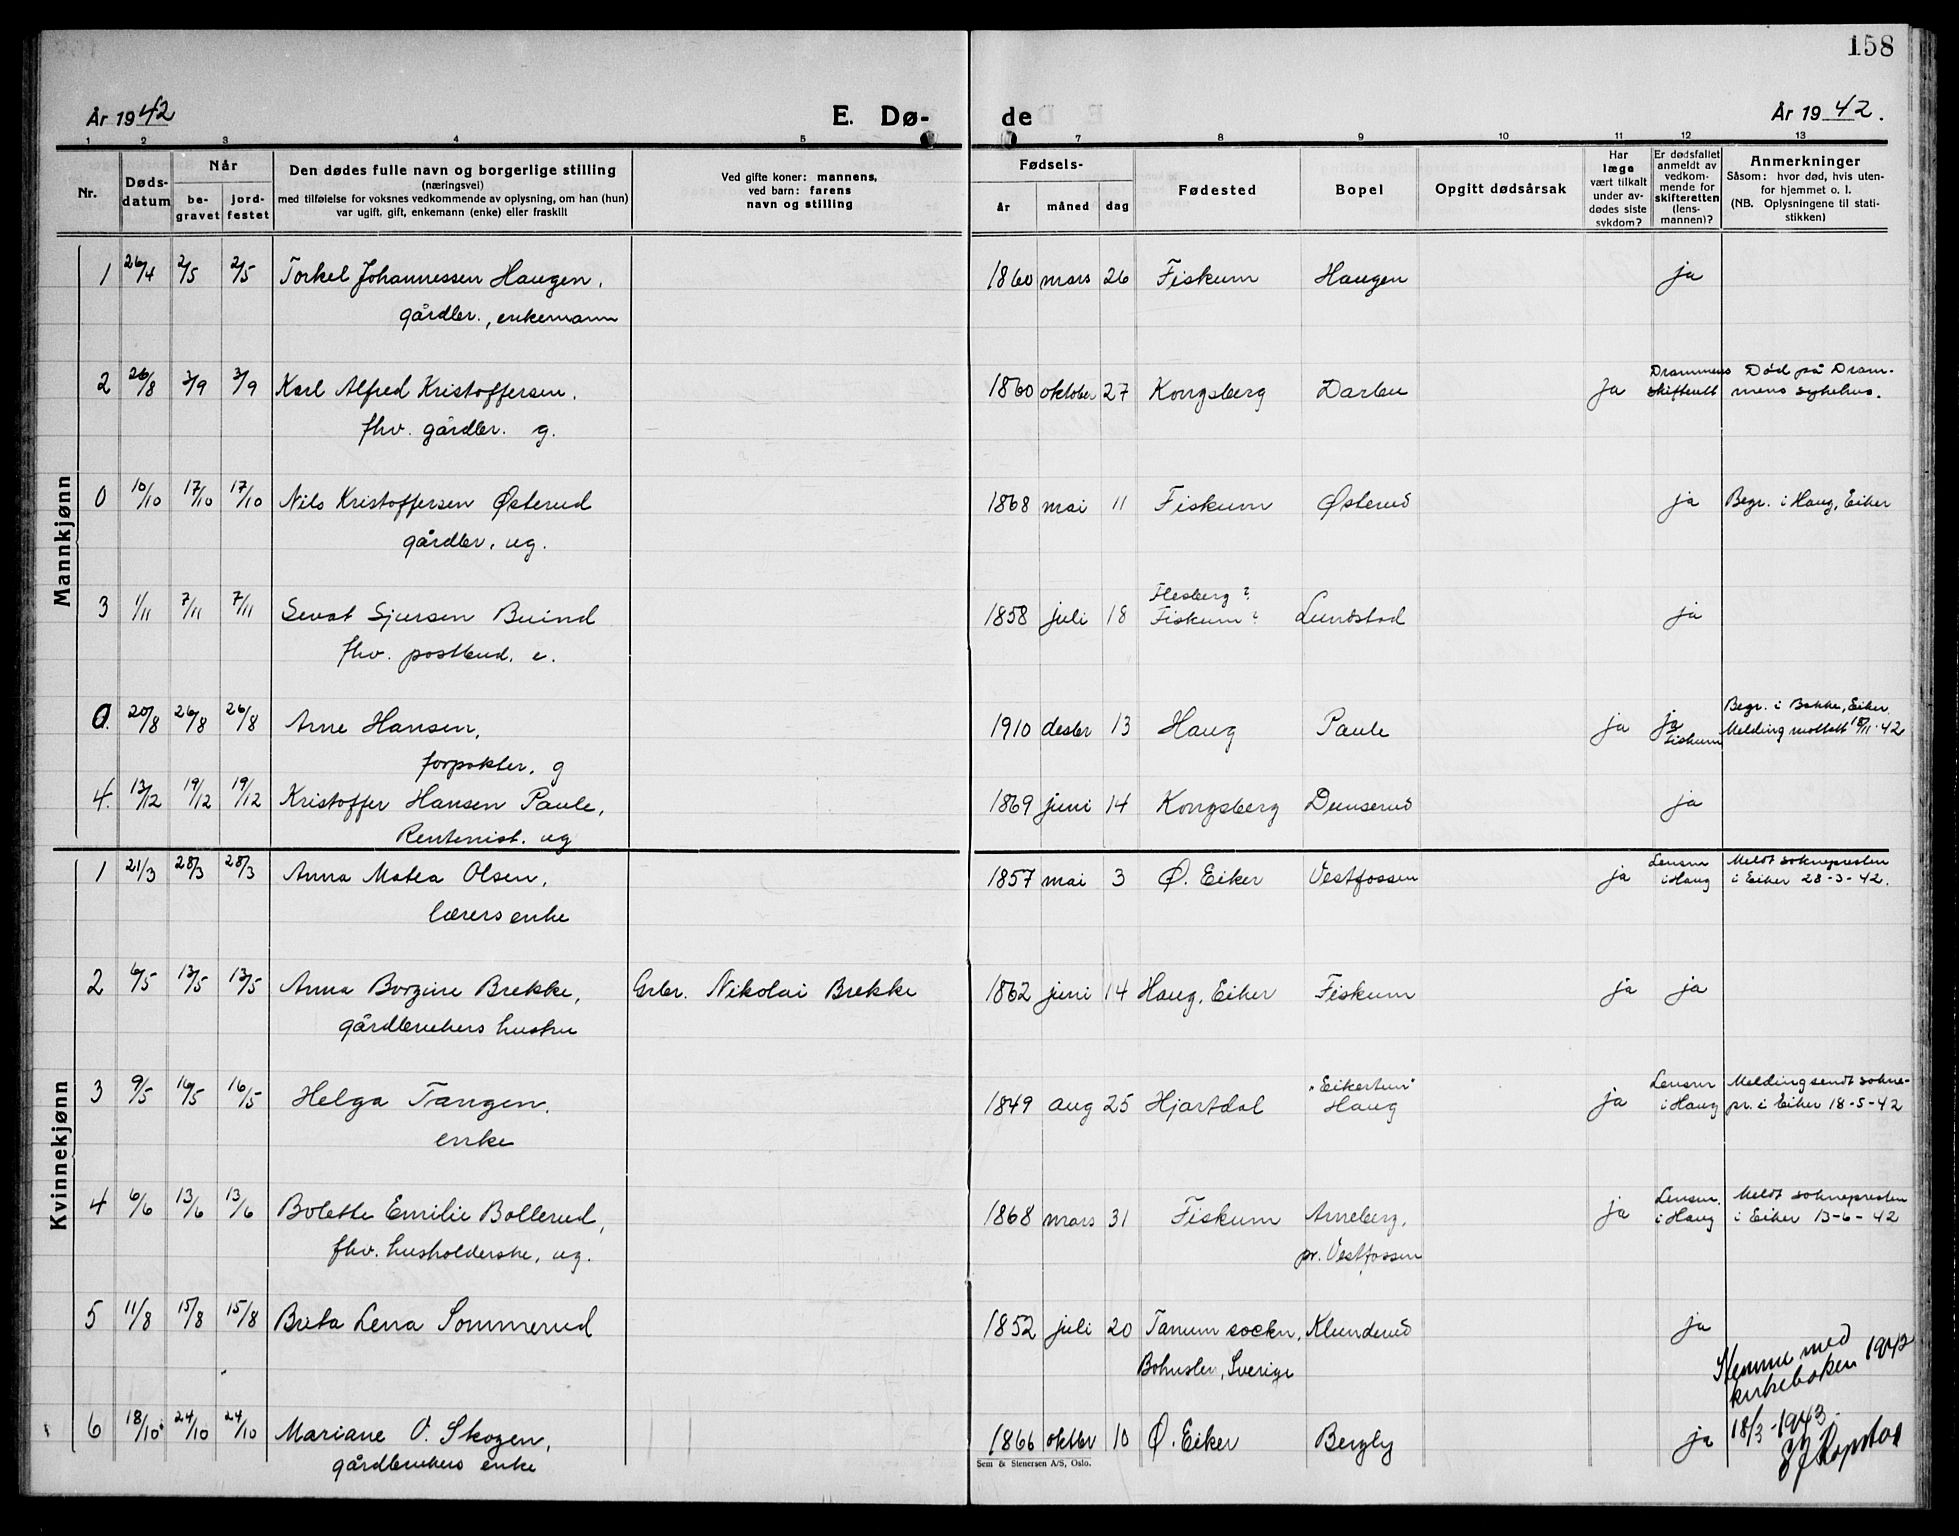 158
År 1942 E. Dø- de År 1942.
1 2 3 4 5 7 8 9 10 11 12 13
Nr. Døds-datum Når be-gravet jord-festet Den dødes fulle navn og borgerlige stilling (næringsvei) med tilføielse for voksnes vedkommende av oplysning, om han (hun) var ugift, gift, enkemann (enke) eller fraskilt Ved gifte koner: mannens, ved barn: farens navn og stilling Fødsels- år måned dag Fødested Bopel Opgitt dødsårsak Har læge vært tilkalt under av-dødes siste sykdom? Er dødsfallet anmeldt av vedkom-mende for skifteretten (lens-mannen)? Anmerkninger Såsom: hvor død, hvis uten-for hjemmet o. l. (NB. Oplysningene til stati-stikken)
Mannkjønn
1 26/4 2/5 2/5 Torkel Johannessen Haugen, 1860 mars 26 Fiskum Haugen ja
gårdbr., enkemann
2 26/8 3/9 3/9 Karl Alfred Kristoffersen, 1860 oktober 27 Kongsberg Darbu ja Drammens skifterett Død på Dram-mens sykehus.
fhv. gårdbr. g.
0 10/10 17/10 17/10 Nils Kristoffersen Østerud 1868 mai 11 Fiskum Østerud ja Begr. i Haug, Eiker
gårdbr, ug.
3 1/11 7/11 7/11 Sevat Sjursen Buind 1858 juli 18 Flesberg? Fiskum? Lundstad ja
fhv. postbud. e.
0. 20/8 26/8 26/8 Arne Hansen, 1910 desbr 13 Haug Paule ja ja Fiskum Begr. i Bakke, Eiker. Melding mottatt 18/11-42
forpakter, g
4. 13/12 19/12 19/12 Kristoffer Hansen Paule, 1869 juni 14 Kongsberg Dunserud ja
Rentenist. ug
Kvinnekjønn
1 21/3 28/3 28/3 Anna Matea Olsen, 1857 mai 3 Ø. Eiker Vestfossen ja Lensm i Haug Meldt sokneprestren i Eiker 28-3-42.
lærers enke
2 6/5 13/5 13/5 Anna Borgine Brekke, Grbr. Nikolai Brekke 1862 juni 14 Haug, Eiker Fiskum ja ja
gårdbrukers hustru
3 9/5 16/5 16/5 Helga Tangen, 1849 aug 25 Hjartdal "Eikertun" Haug ja Lensm i Haug Melding sendt sokne-pr. i Eiker 18-5-42
enke
4 6/6 13/6 13/6 Bolette Emilie Bollerud, 1868 mars 31 Fiskum Arneberg, pr. Vestfossen ja Lensm. i Haug Meldt soknepresten i Eiker 13-6-42
fhv. husholderske, ug.
5 11/8 15/8 15/8 Brita Lena Sommerud 1852 juli 20 Tanum sockn, Bohuslen, Sverige Klunderud ja
6 18/10 24/10 24/10 Mariane O. Skogen, 1866 oktbr 10 Ø. Eiker Bergly ja
gårdbrukers enke
Stemmer med
kirkeboken 1942
18/3-1943.
Sem & Stenersen A/S, Oslo.